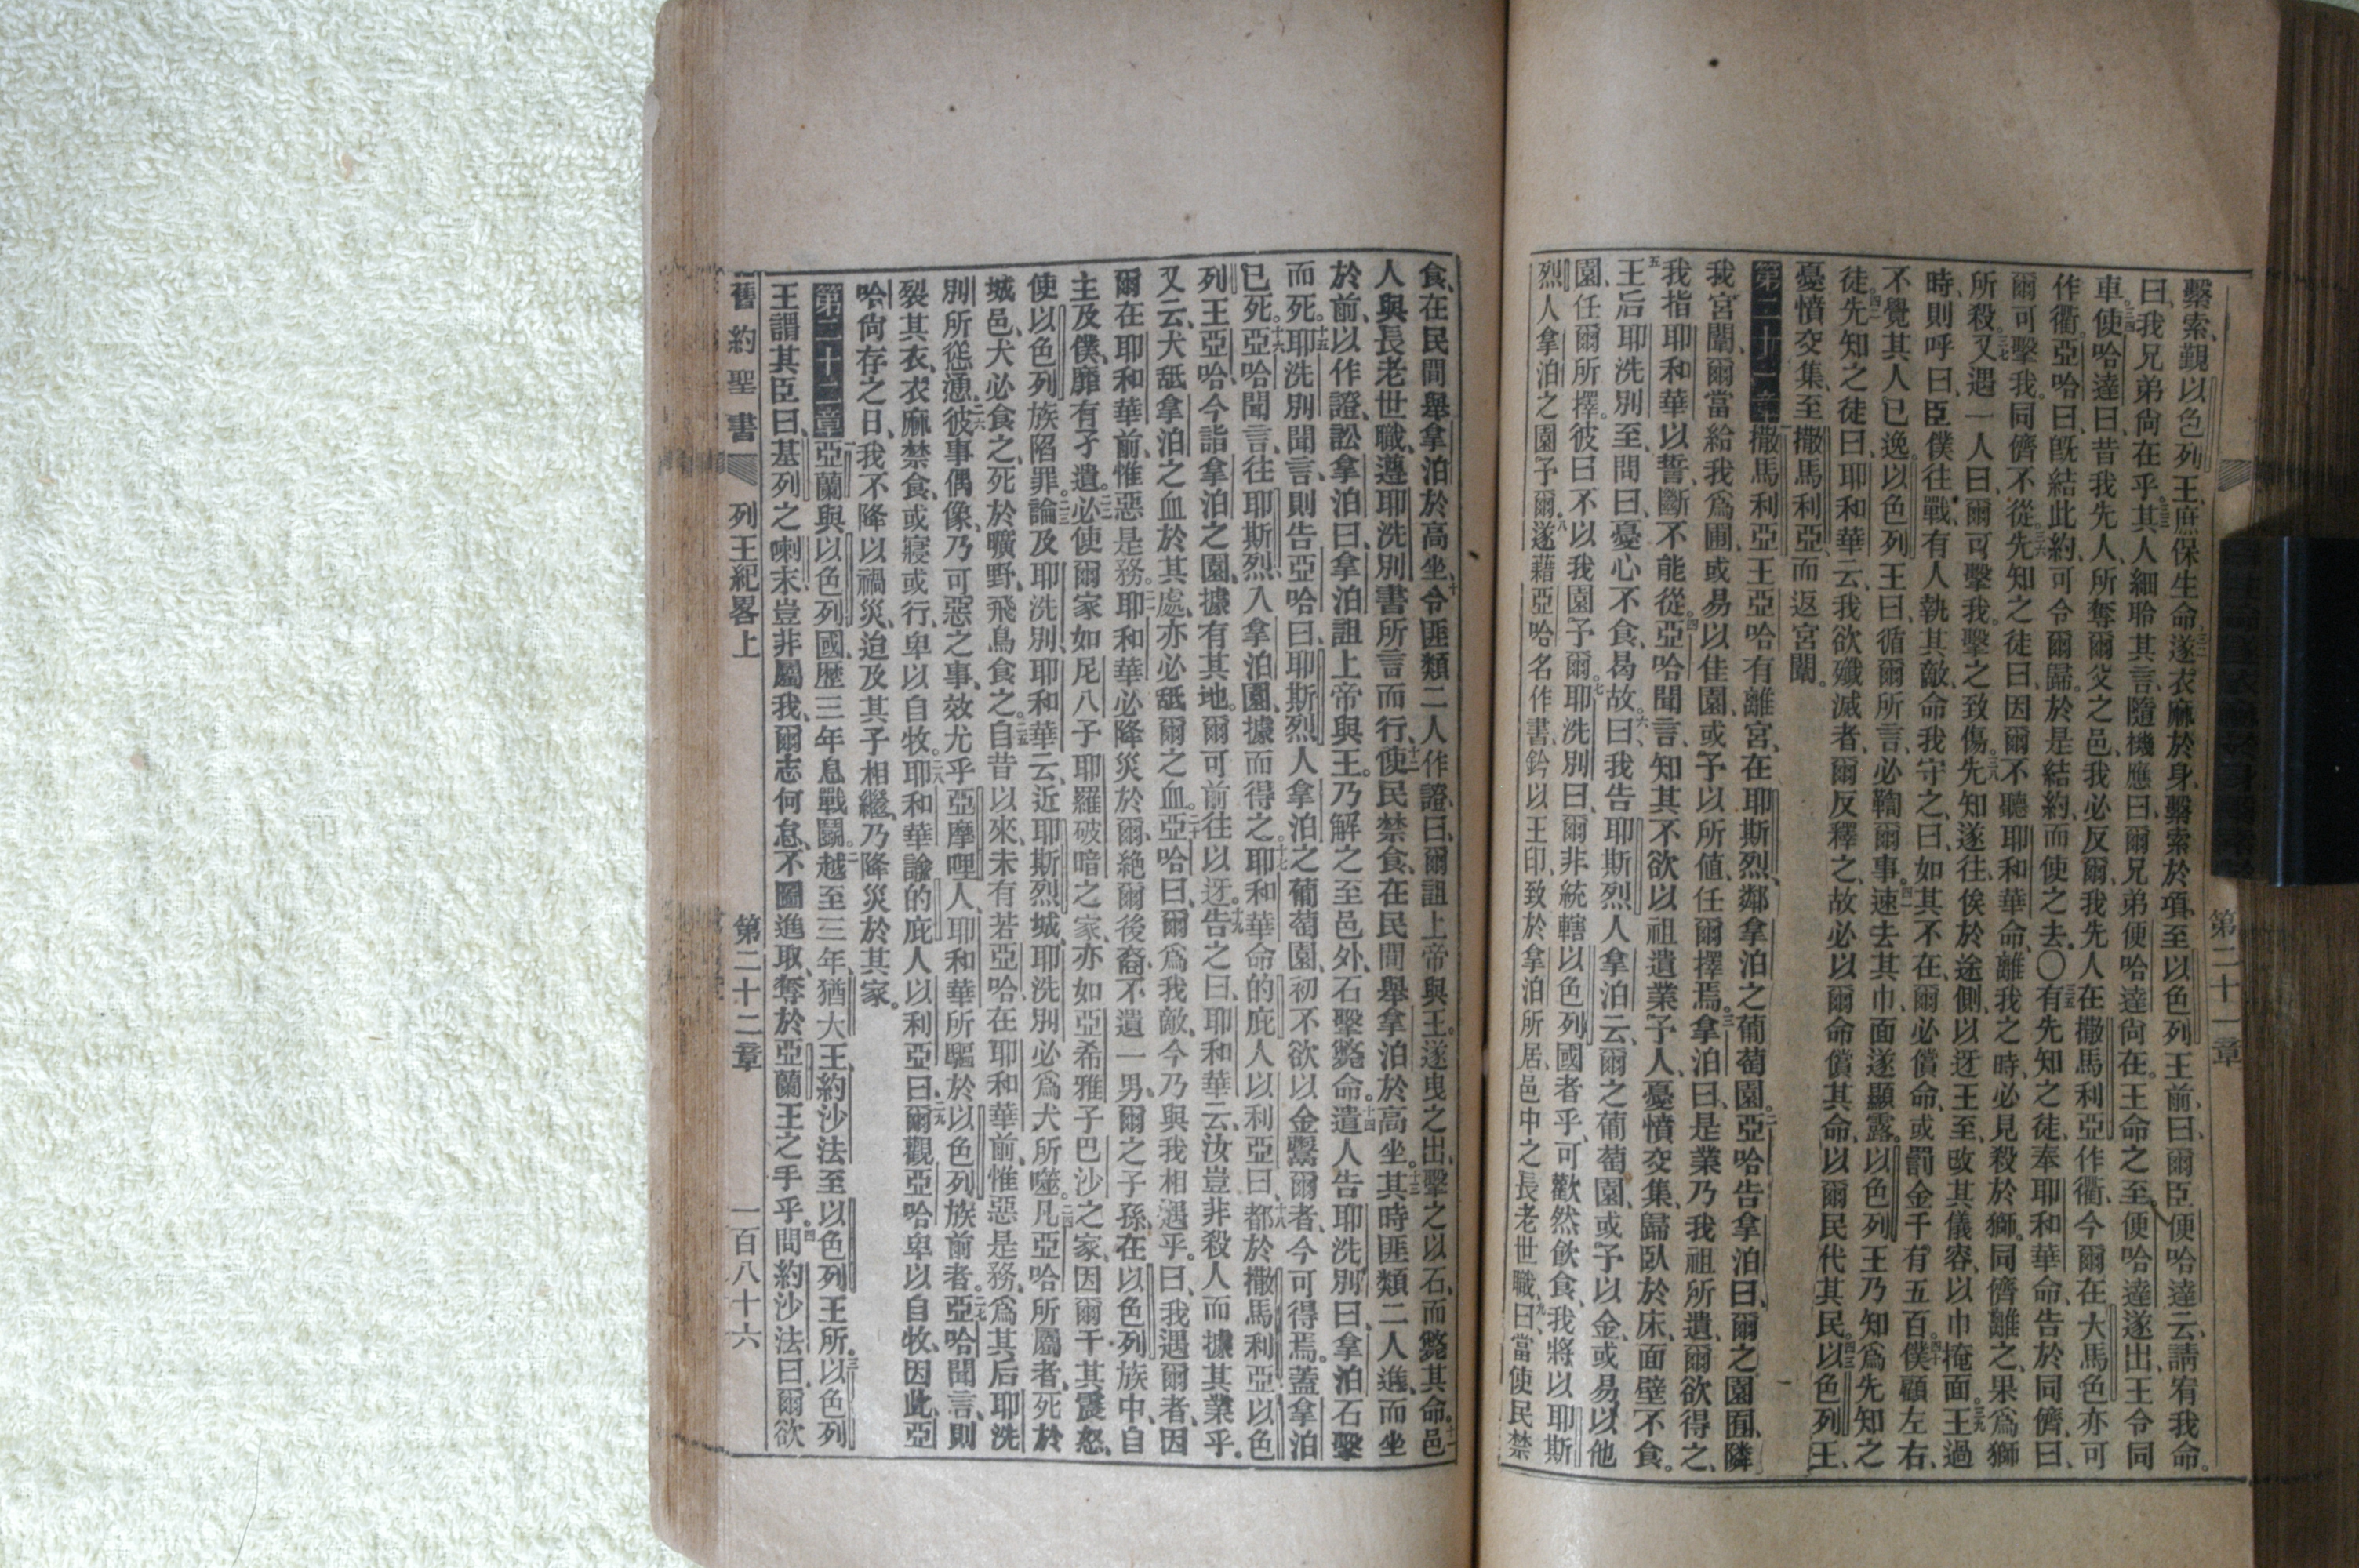 繫索、覲以色列王、庶保生命、三二遂衣麻於身、繫索於項、至以色列王前、曰、爾臣便哈達云、請宥我命。
曰、我兄弟尚在乎。三三其人細聆其言、隨機應曰、爾兄弟便哈達尚在。王命之至、便哈達遂出、王令同
車。三四便哈達曰、昔我先人、所奪爾父之邑、我必反爾、我先人在撒馬利亞作衢、今爾在大馬色亦可
作衢。亞哈曰、旣結此約、可令爾歸。於是結約、而使之去。〇三五有先知之徒、奉耶和華命、告於同儕曰、
爾可擊我。同儕不從。三六先知之徒曰、因爾不聽耶和華命、離我之時、必見殺於獅。同儕離之、果爲獅
所殺。三七又遇一人曰、爾可擊我。擊之致傷。三八先知遂往、俟於途側、以迓王至、改其儀容、以巾掩面。三九王過
時、則呼曰、臣僕往戰、有人執其敵、命我守之、曰、如其不在、爾必償命、或罰金千有五百。四十僕顧左右、
不覺其人已逸。以色列王曰、循爾所言、必鞫爾事。四一速去其巾、面遂顯露。以色列王乃知爲先知之
徒。四二先知之徒曰、耶和華云、我欲殲滅者、爾反釋之、故必以爾命償其命、以爾民代其民。四三以色列王、
憂憤交集、至撒馬利亞、而返宮闈。
第二十一章 撒馬利亞王亞哈有離宮、在耶斯烈、鄰拿泊之葡萄園。二亞哈告拿泊曰、爾之園囿、隣
我宮闈、爾當給我爲圃、或易以佳園、或予以所值、任爾擇焉。三拿泊曰、是業乃我祖所遺、爾欲得之、
我指耶和華以誓、斷不能從。四亞哈聞言、知其不欲以祖遺業予人、憂憤交集、歸臥於床、面壁不食。
五王后耶洗別至、問曰、憂心不食、曷故。六曰、我告耶斯烈人拿泊云、爾之葡萄園、或予以金、或易以他
園、任爾所擇。彼曰、不以我園予爾。七耶洗別曰、爾非統轄以色列國者乎、可歡然飲食、我將以耶斯
烈人拿泊之園予爾。八遂藉亞哈名作書、鈐以王印、致於拿泊所居、邑中之長老世職、九曰、當使民禁
第二十一章
食、在民間舉拿泊於高坐、十令匪類二人作證、曰、爾詛上帝與王。遂曳之出、擊之以石、而斃其命。十一邑
人與長老世職、遵耶洗別書所言而行、十二使民禁食、在民間舉拿泊於高坐。十三其時匪類二人進、而坐
於前、以作證、訟拿泊曰、拿泊詛上帝與王。乃解之至邑外、石擊斃命。十四遣人告耶洗別曰、拿泊石擊
而死。十五耶洗別聞言、則告亞哈曰、耶斯烈人拿泊之葡萄園、初不欲以金鬻爾者、今可得焉。蓋拿泊
已死。十六亞哈聞言、往耶斯烈、入拿泊園、據而得之。十七耶和華命的庇人以利亞曰、十八都於撒馬利亞以色
列王亞哈、今詣拿泊之園、據有其地。爾可前往以迓。十九告之曰、耶和華云、汝豈非殺人而據其業乎。
又云、犬舐拿泊之血於其處、亦必舐爾之血。二十亞哈曰、爾爲我敵、今乃與我相遇乎。曰、我遇爾者、因
爾在耶和華前、惟惡是務。二一耶和華必降災於爾、絕爾後裔、不遺一男、爾之子孫、在以色列族中、自
主及僕、靡有孑遺。二二必使爾家如尼八子耶羅破暗之家、亦如亞希雅子巴沙之家、因爾干其震怒、
使以色列族陷罪。二三論及耶洗別、耶和華云、近耶斯烈城、耶洗別必爲犬所噬。二四凡亞哈所屬者、死於
城邑、犬必食之、死於曠野、飛鳥食之。二五自昔以來、未有若亞哈、在耶和華前、惟惡是務、爲其后耶洗
別所慫慂、二六彼事偶像、乃可惡之事、效尤乎亞摩哩人、耶和華所驅於以色列族前者。二七亞哈聞言、則
裂其衣、衣麻禁食、或寢或行、卑以自牧。二八耶和華諭的庇人以利亞曰、二九爾觀亞哈卑以自牧、因此、亞
哈尚存之日、我不降以禍災、迨及其子相繼、乃降災於其家。
第二十二章 亞蘭與以色列國、歷三年息戰鬬。二越至三年、猶大王約沙法至以色列王所。三以色列
王謂其臣曰、基列之喇末、豈非屬我、爾志何怠、不圖進取、奪於亞蘭王之手乎。四問約沙法曰、爾欲
舊約聖書 列王紀畧上 第二十二章 一百八十六